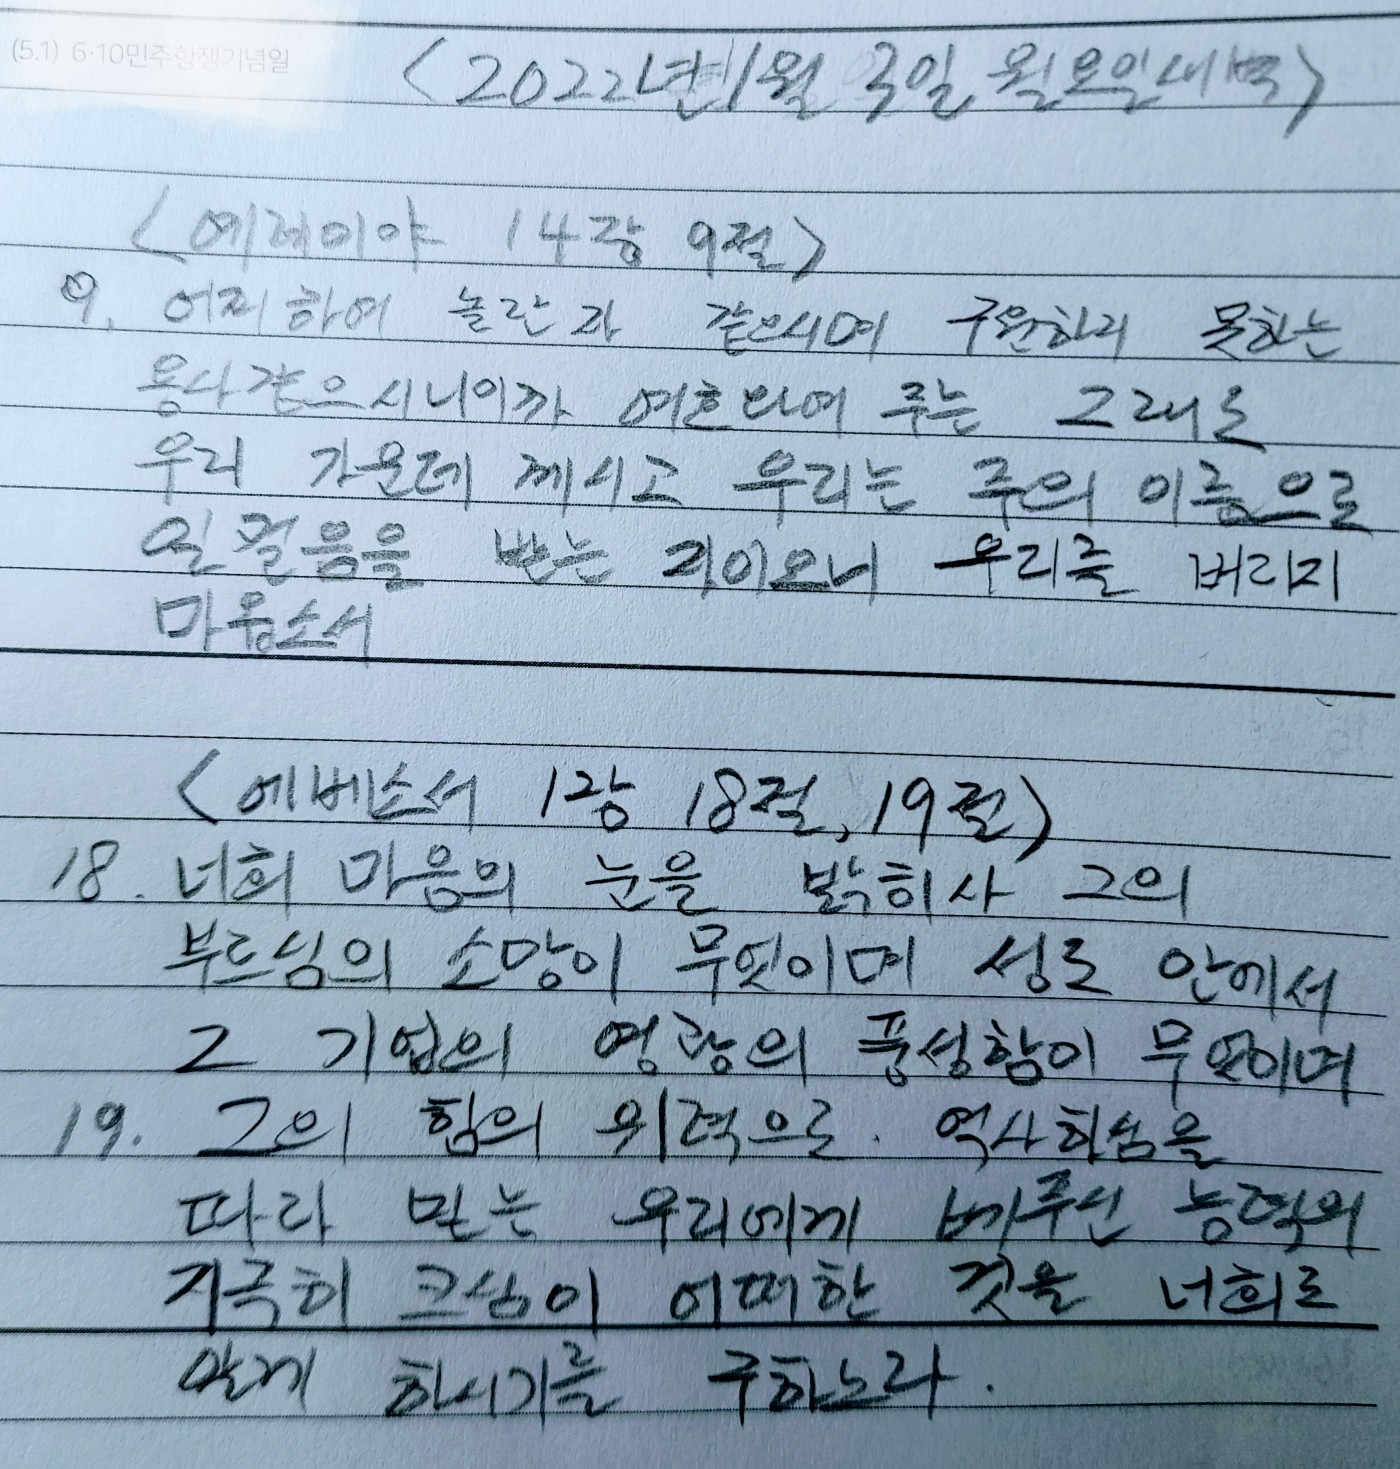 (5.1) 6·10민주항쟁기념일
<2022년 1월 3일 월요일새벽>
<예레미야 14장 9절>
9. 어찌하여 놀란 자 같으시며 구원하지 못하는
용사같으시니이까 여호와여 주는 그래도
우리 가운데 계시고 우리는 주의 이름으로
일컬음을 받는 자이오니 우리를 버리지
마옵소서
<에베소서 1장 18절, 19절>
18. 너희 마음의 눈을 밝히사 그의
부르심의 소망이 무엇이며 성도 안에서
그 기업의 영광의 풍성함이 무엇이며
19. 그의 힘의 위력으로. 역사하심을
따라 믿는 우리에게 베푸신 능력의
지극히 크심이 어떠한 것을 너희로
알게 하시기를 구하노라.